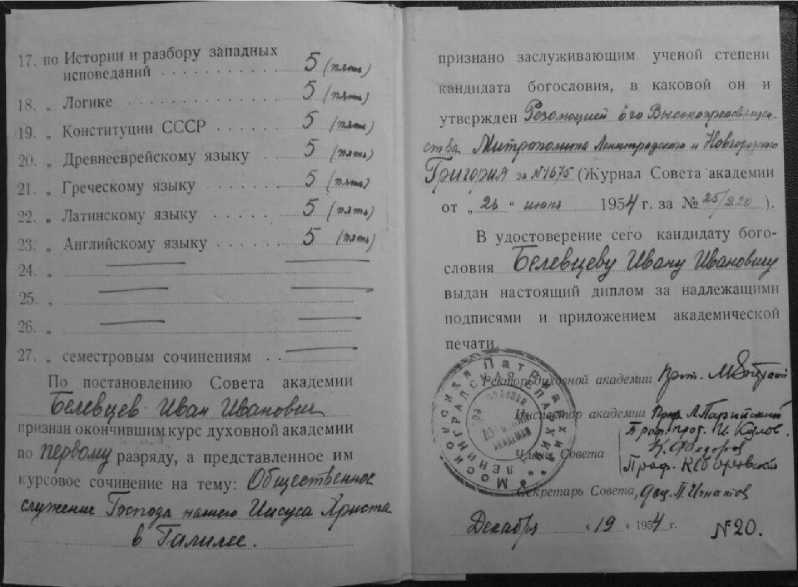 17. по Истории и разбору западных
исповеданий . . . . . . . . . . . 5 (пять)
18. „ Логике . . . . . . . . . . . 5 (пять)
19. „ Конституции СССР . . . . . . 5 (пять)
20. „ Древнееврейскому языку . . . 5 (пять)
21. „ Греческому языку . . . . . . 5 (пять)
22. „ Латинскому языку . . . . . . 5 (пять)
23. „ Английскому языку . . . . . 5 (пять)
24. „
25. „
26. „
27. „ семестровым сочинениям . .
По постановлению Совета академии
Белевцев Иван Иванович
признан окончившим курс духовной академии
по первому разряду, а представленное им
курсовое сочинение на тему: Общественное
служение Господа нашего Иисуса Христа
в Галилее.
признано заслуживающим ученой степени
кандидата богословия, в каковой он и
утвержден Резолюцией его Высокопреосвященс-
тва Митрополита Ленинградского и Новгородского
Григория за №1675 (Журнал Совета академии
от „26“ июня 1954 г. за № 25/220).
В удостоверение сего кандидату бого-
словия Белевцеву Ивану Ивановичу
выдан настоящий диплом за надлежащими
подписями и приложением академической
печати.
Ректор духовной академии Прот. М.
Инспектор академии Проф. Л. Парийский
Проф. прот. И. Козлов.
Члены Совета
Проф. К. Сборовский
Секретарь Совета, доц. П. Игнатов
Декабря „19“ 1954 г. №20.
МОСКОВСКАЯ ПАТРИАРХИЯ
ЛЕНИНГРАДСКАЯ ЕПАРХИЯ